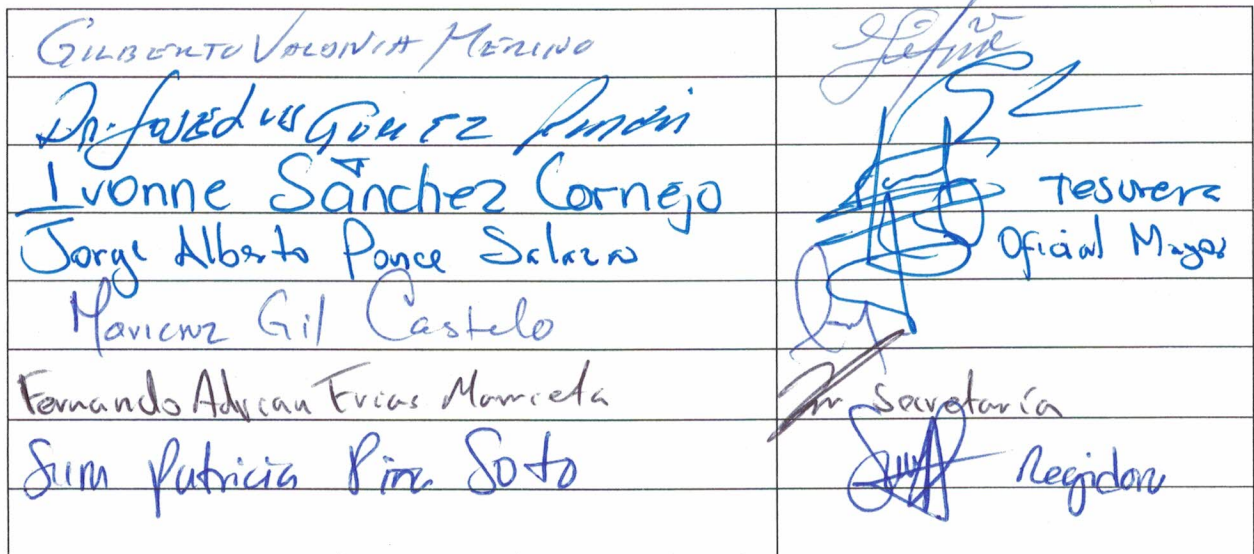 GILBERTO VALONIA MERINO
Dr. José Luis GÓMEZ
Ivonne Sánchez Cornejo Tesurera
Jorge Alberto Ponce Salazar Oficial Mayor
Maricruz Gil Castelo
Fernando Adrian Frias Secretaría
Patricia Soto Regidora